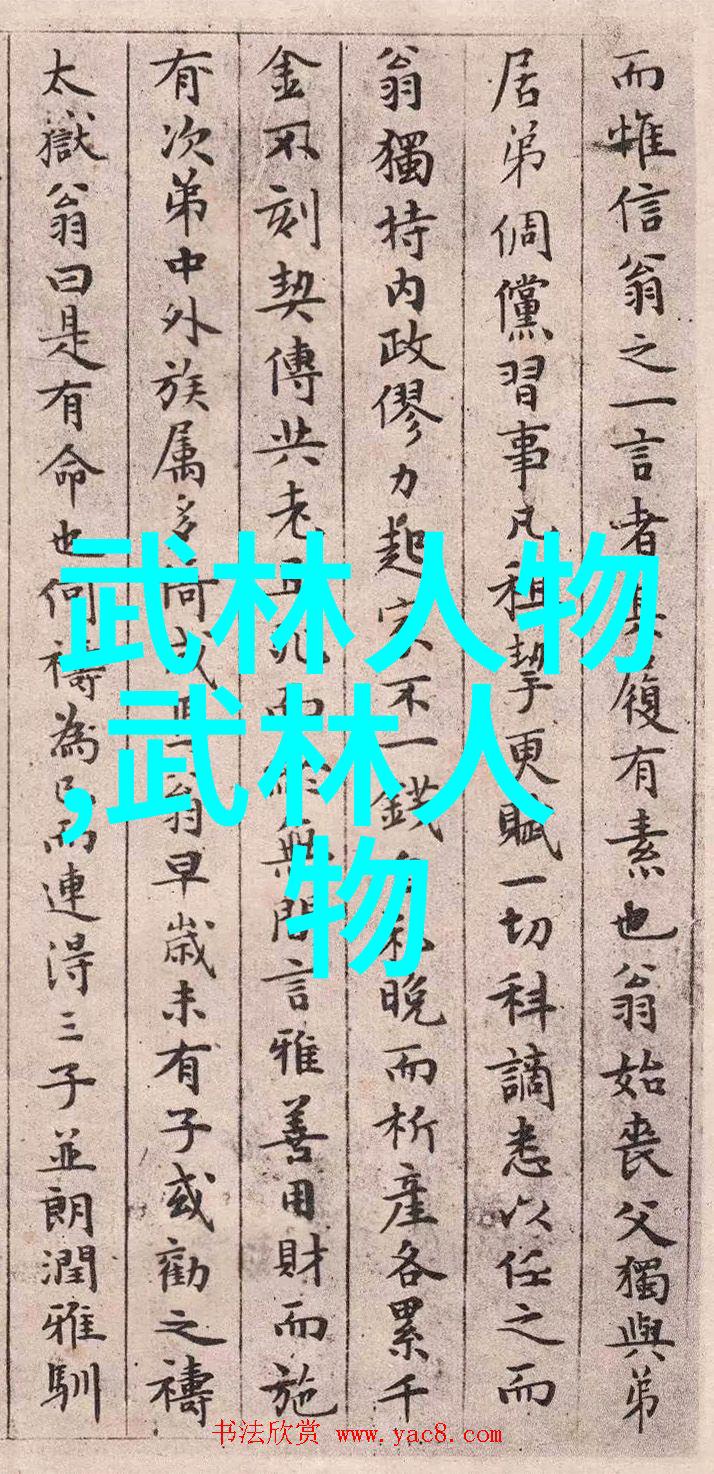 而惟信翁之一言者其履有素也翁始喪父獨與弟
居弟倜儻習事凡租挈更賦一切科謫悉以任之而
翁獨持内政僇力起家不一錢私晚而析產各累千
金不刻契傳共老而無間言雅善用財而施
有次第中外族属多翁早歲未有子或勸之禱
太嶽翁曰是有命也何禱為已而連得三子並朗潤雅馴
武林人物
,武林人
物
书法欣赏 www.yac8.com